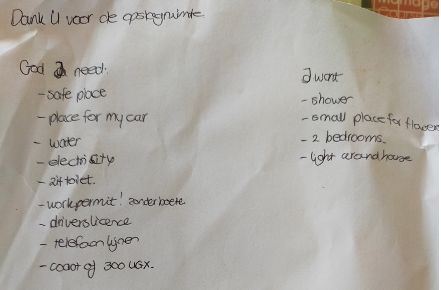 Dank U voor de opslagruimte
God I need:
- safe place
- place for my car
- water
- electricity
- 2x toilet.
- workpermit! zonder boete
- driverslicence
- telefoon lijnen
- coast of 300 UGX.
I want
- shower
- small place for flower
- 2 bedrooms.
- light around house